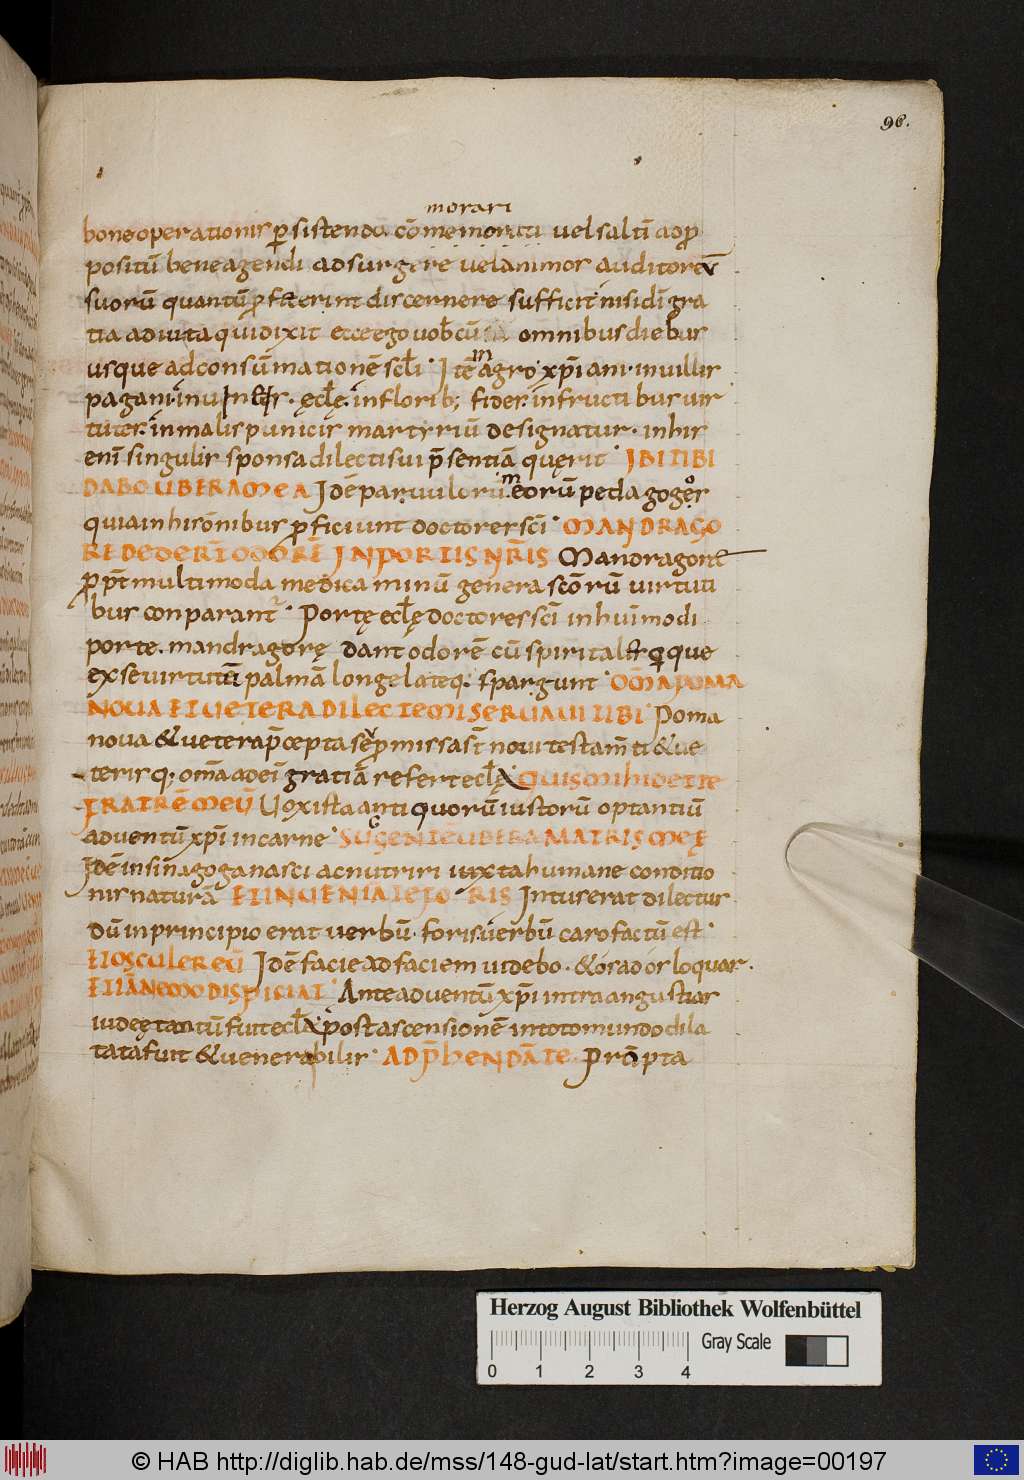 96.
morari
boneoperationis ꝑsistendū cōmemorati velsaltī adꝓ
positū beneagendi adsurgere velanimos auditorēs
suorū quantū ꝓfecerint discernere sufficit nisidī gra
tia adiuta quidixit ecceegouobcū omnibusdiebus
usque adconsūmationē scłi · Itē agro xp̄iani · inuillis
pagani · inuineis · ęcłę · infloribꝫ fides · infructibus uir
tutes · inmalispunicis martyriū designatur · inhis
enī singulis sponsadilectisui p̄sentiā quęrit · IBITIBI
DABOUBERAMEA Idē paruulorū · eorū pedagogos
quiainhisōmnibus ꝓficiunt doctoresscī · MANDRAGO
REDEDERT̄ ODORĒ INPORTISNR̄IS Mandragore
ꝓpt̄ multimoda medicaminū genera scōrū uirtuti
bus conparant᷑ · Portę ecłę doctoresscī inhuīmodi
porte · mandragorę dant odorē cū spiritaleꝗque
exseuirtutū palmā longelateqꝫ spargunt · OM̄APOMA
NOUAETUETERADILECTEMISERUAUITIBI · Poma
noua &ueterap̄cepta sēꝑmissast̄ nouitestam̄ti &ue
terisqꝫ om̄a adeī gratiā refertecłę QUISMIHIDETTE
FRATRĒMEŪ Uoxista antiquorū iustorū optantiū
aduentū xp̄i incarne · SUGENTEUBERAMATRISMEĘ
Idē insinagoganasci acnutriri iuxtahumane conditio
nisnaturā ETINUENIATEFORIS Intuserat dilectus
dū inprincipio erat uerbū · foris uerbū carofactū est ·
ETOSCULERTEŪ Idē facieadfaciem uidebo · &osados loquar ·
ETIĀNEMODISPICIAT · Anteaduentū xp̄i intraangustias
iudeętantūfuitecłā postascensionē intotomundodila
tatafuit &uenerabilis · ADP̄HENDĀTE · Prōpta
Herzog August Bibliothek Wolfenbüttel
Gray Scale
0 1 2 3 4
© HAB http://diglib.hab.de/mss/148-gud-lat/start.htm?image=00197